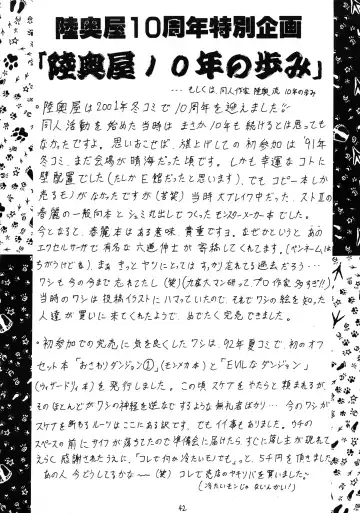 陸奥屋10周年特別企画
「陸奥屋10年の歩み」
・・・もしくは、同人作家 陸奥 流 10年の歩み
陸奥屋は2001年冬コミで10周年を迎えました
同人活動を始めた当時は まさか10年も続けるとは思っても
なかたですよ。思いおこせば、旗上げしての初参加は '91年
冬コミ、まだ会場が晴海だった頃です。しかも幸運なコトに
壁配置でした(たしかE館だったと思います)、でもコピー本しか
売るモノがなかったですが(苦笑) 当時大ブレイク中だった、ストⅡの
春麗の一般向本とシュミ丸出しでつくったモンスターメーカー本でした。
今となると、春麗本はある意味 貴重ですヨ。なぜかというと あの
エクセルサーガで有名な六道伸士が寄稿してくれてます。(ペンネームは
ちがうけども)、まぁ きっとヤツにとっては すっかり忘れてる過去だろう・・・
ワシも今の今まで忘れてたし(笑) (九産大マン研ってプロ作家多すぎ!!)
当時のワシは投稿イラストにハマっていたので、それでワシの絵を知った
人達が買いに来てくれたようで、めでたく完売できました。
・初参加での完売に気を良くしたワシは、92年夏コミで、初のオフ
セット本「おさわりダンジョン①」(モンメカ本)と「EVILなダンジョン」
(ウィザードリィ本)を発行しました。この頃スケブをやたらと頼まれるが、
そのほとんどがワシの神経を逆なでするような無礼者ばかり・・・ 今のワシが
スケブを断わるルーツはここにある訳です、でもイイ事もありました。ウチの
スペースの前にサイフが落ちてたので準備会に届けたら、すぐに落し主が現れて
えらく感謝されたうえに、「コレで何か冷たいモノでも」っと、5千円を頂きました
あの人今どうしてるかな〜(笑) コレで売店のヤキソバを買いました。
(冷たいモンじゃないんかい!)
42